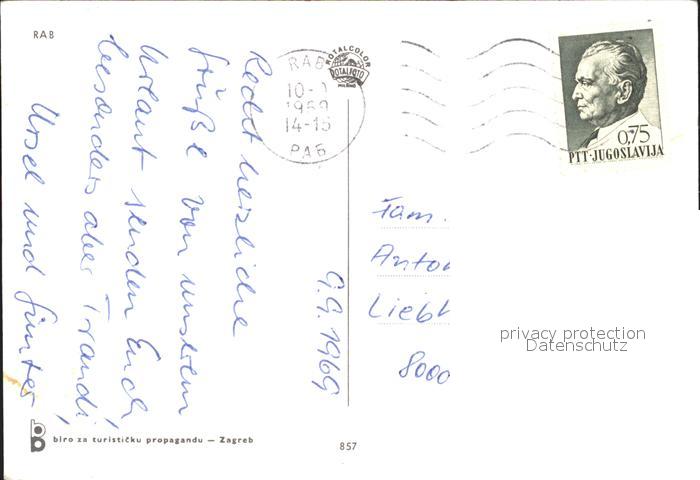 RAB
ROTALCOLOR
ROTALFOTO
MILANO
RAB
1969
14-15
РАБ
0,75
PTT-JUGOSLAVIJA
Recht herzliche
Grüße von unserem
Urlaub senden Euch,
besonders aber Traudi,
Ursel und Günter
9.9.1969
Fam.
Anton
Liebh
8000
privacy protection
Datenschutz
biro za turističku propagandu — Zagreb
857